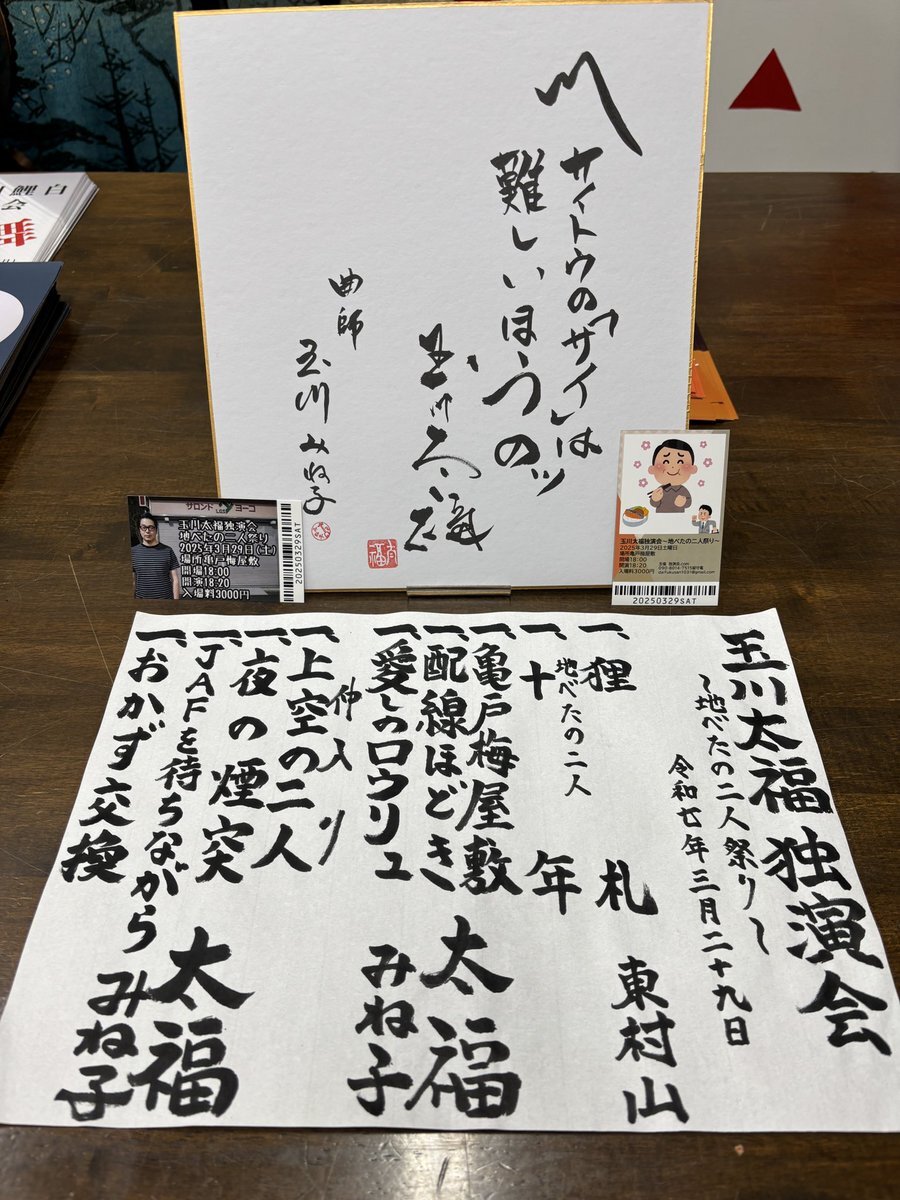 サイトウの「サイ」は
難しいほうのッ
玉川太福
曲師
玉川みね子
サロンド ヨーコ
玉川太福独演会
地べたの二人祭り
2025年3月29日(土)
場所亀戸梅屋敷
開場18:00
開演18:20
入場料3000円
20250329SAT
玉川太福独演会〜地べたの二人祭り〜
2025年3月29日土曜日
場所亀戸梅屋敷
開場18:00
開演18:20
入場料3000円
20250329SAT
玉川太福独演会
〜地べたの二人祭り〜
令和七年三月二十九日
一、狸札 東村山
地べたの二人
一、十年
一、亀戸梅屋敷
一、配線ほどき
一、愛しのロウリュ
太福
みね子
仲入り
一、上空の二人
一、夜の煙突
一、JAFを待ちながら
一、おかず交換
太福
みね子